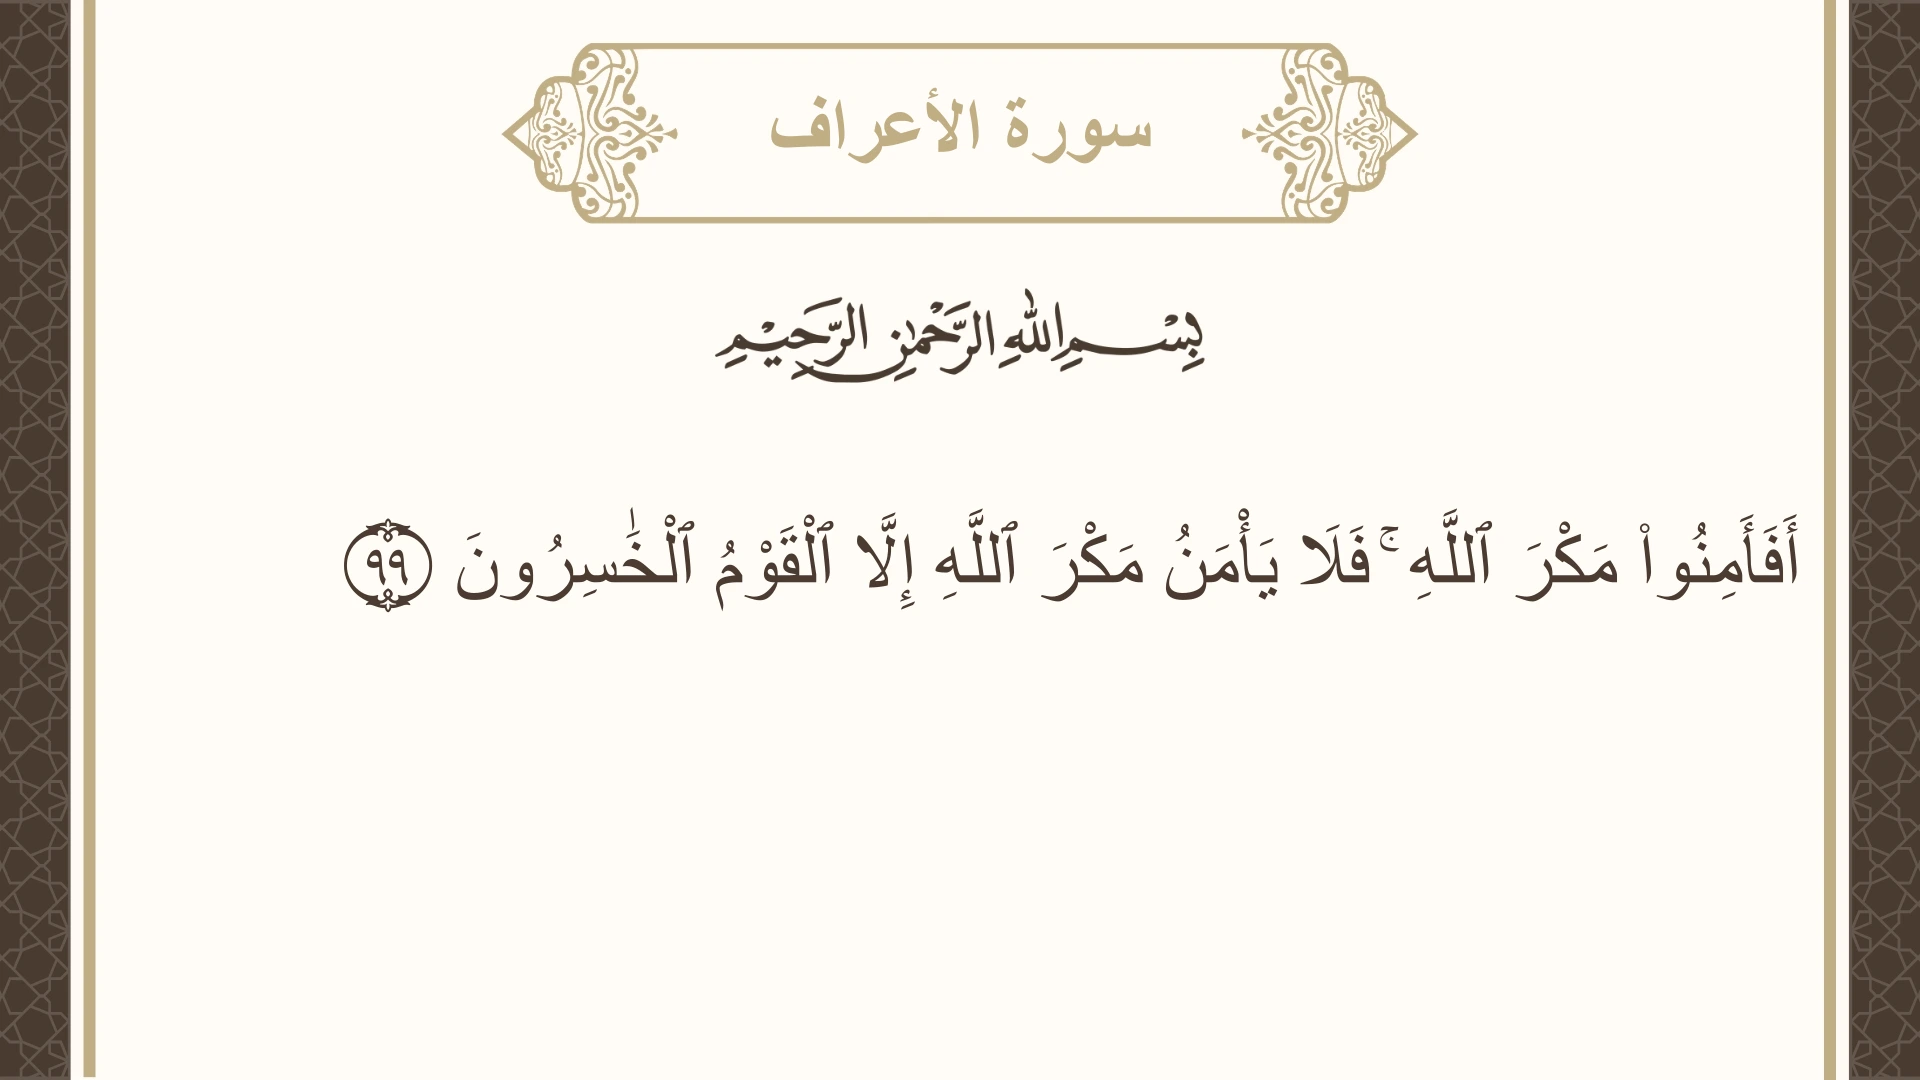 سورة الأعراف
بِسْمِ اللهِ الرَّحْمٰنِ الرَّحِيْمِ
أَفَأَمِنُوا۟ مَكْرَ ٱللَّهِ ۚ فَلَا يَأْمَنُ مَكْرَ ٱللَّهِ إِلَّا ٱلْقَوْمُ ٱلْخَٰسِرُونَ ٩٩